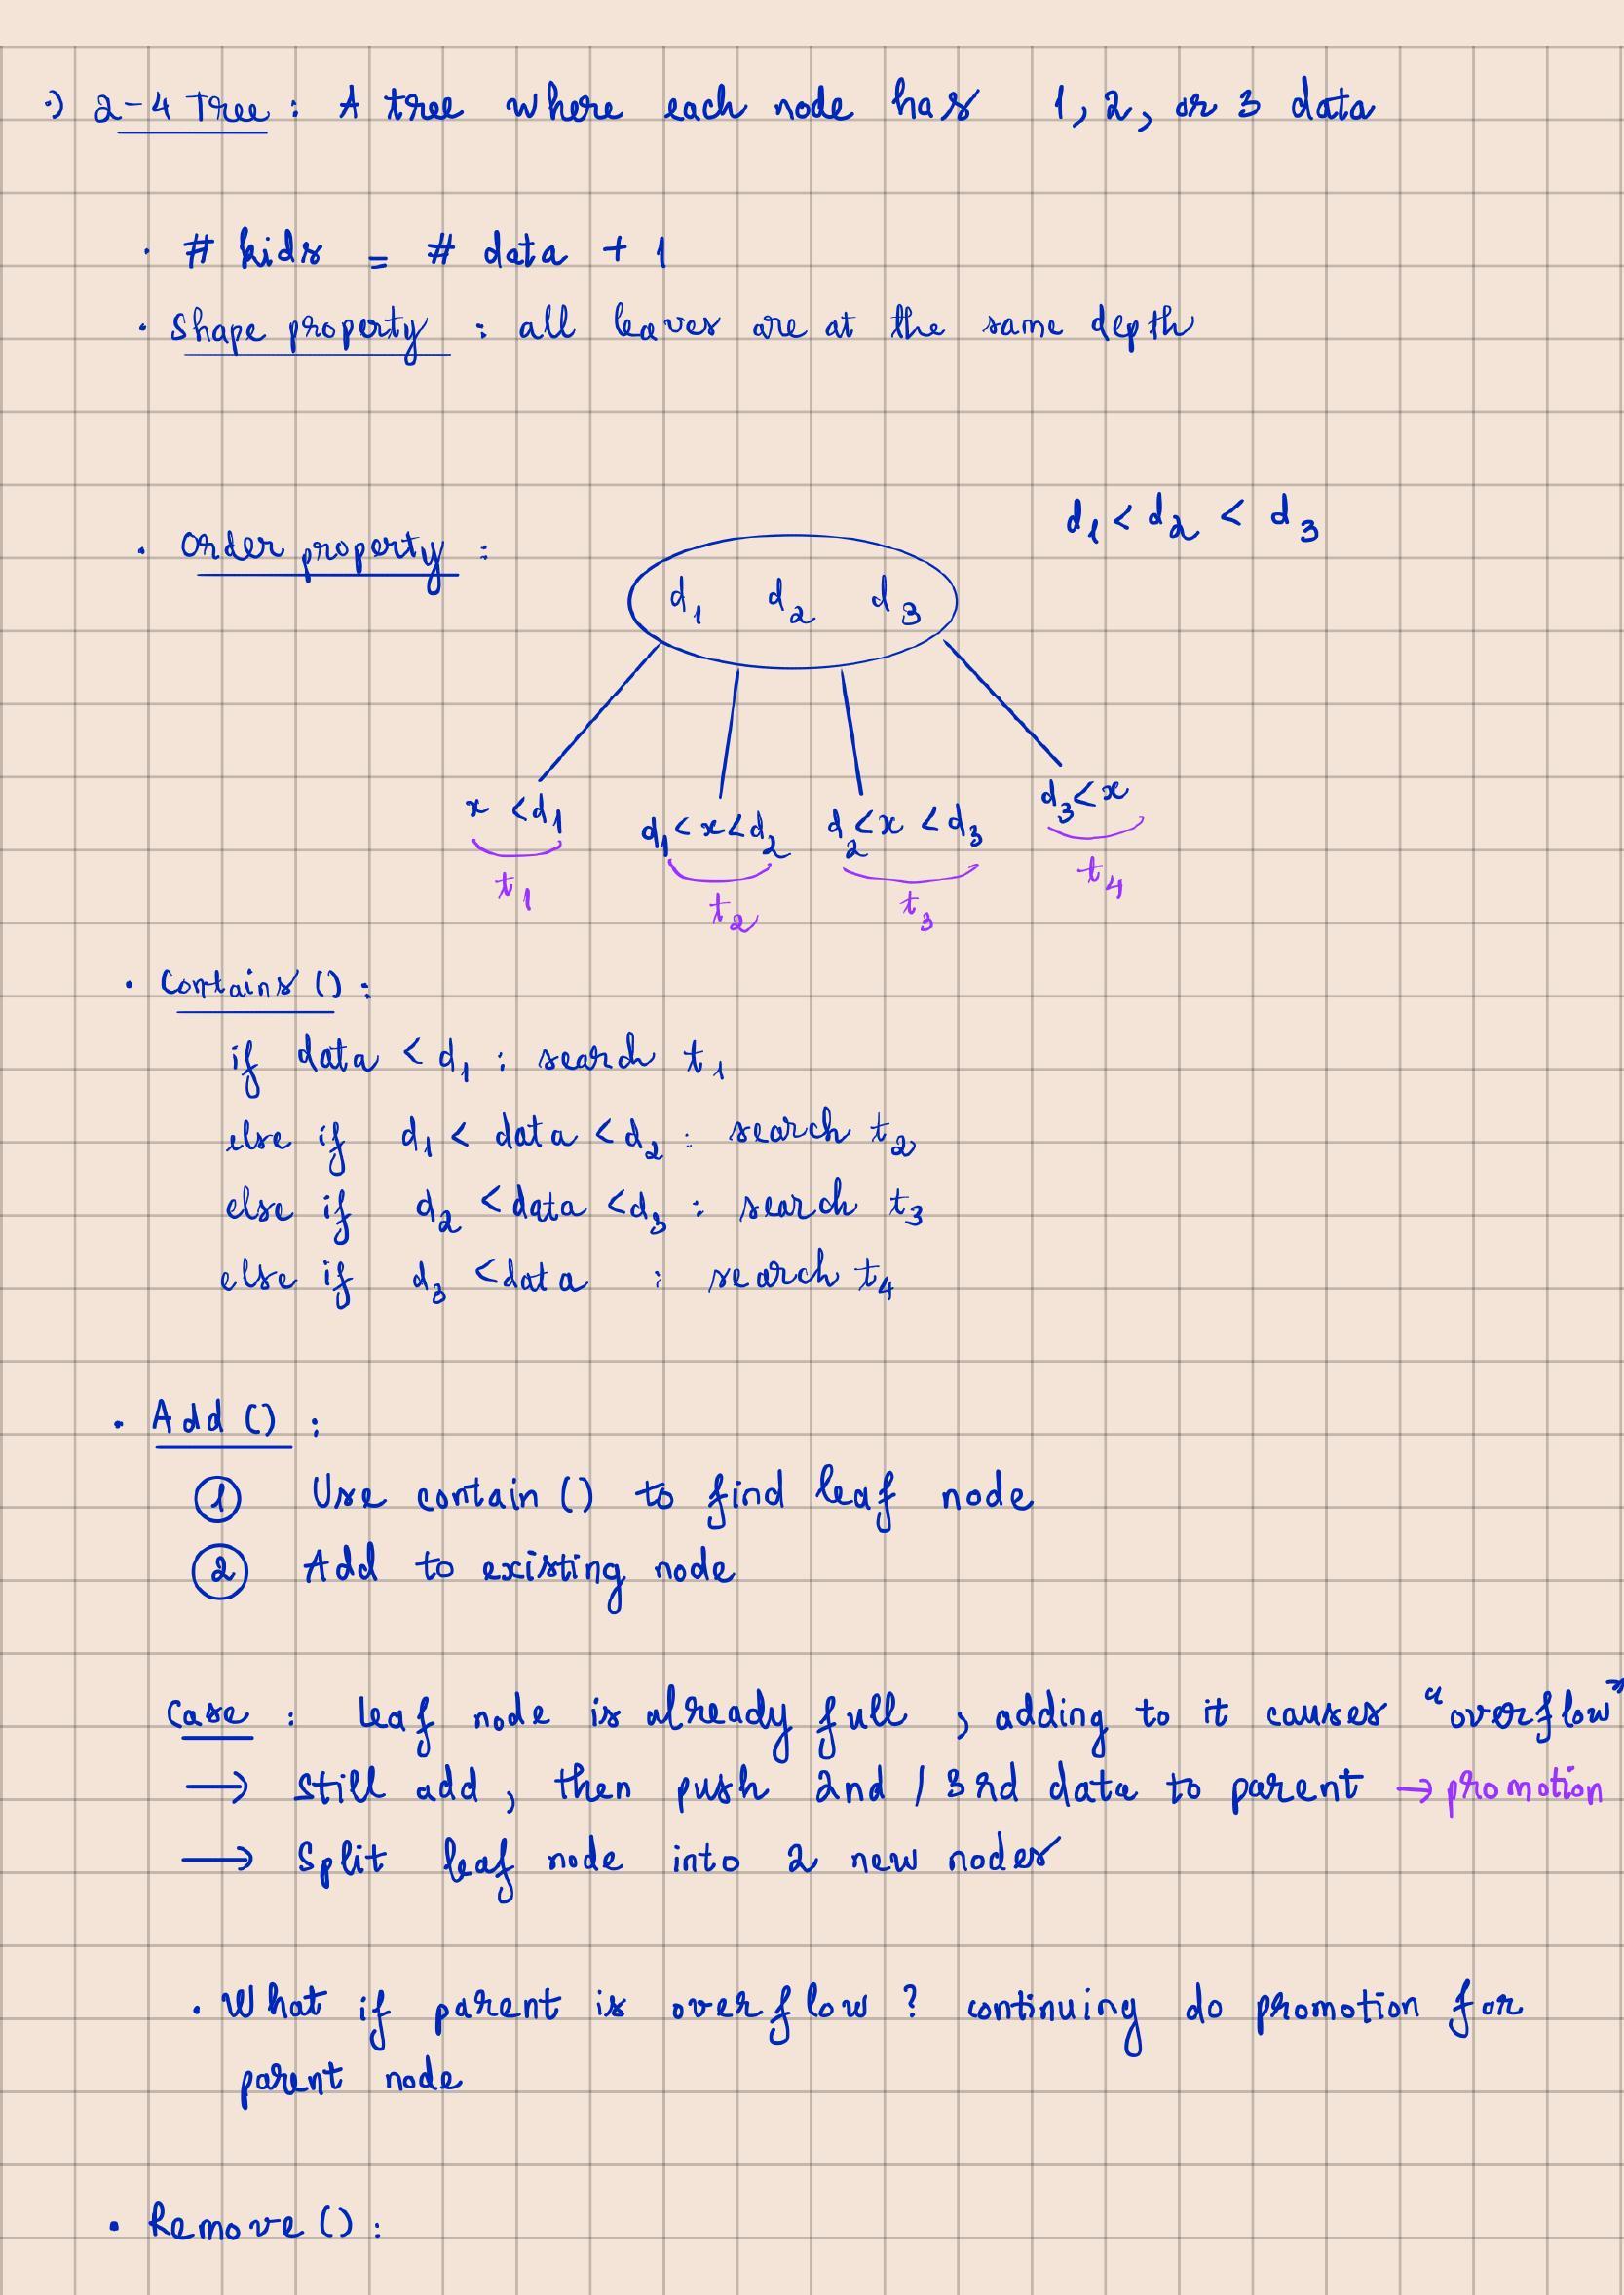 ·) 2-4 Tree : A tree where each node has 1, 2, or 3 data
· # kids = # data + 1
· Shape property : all leaves are at the same depth
d1 < d2 < d3
· Order property :
d1 d2 d3
x < d1 d1 < x < d2 d2 < x < d3 d3 < x
t1 t2 t3 t4
· Contains () :
if data < d1 : search t1
else if d1 < data < d2 : search t2
else if d2 < data < d3 : search t3
else if d3 < data : search t4
· Add () :
① Use contain () to find leaf node
② Add to existing node
Case : leaf node is already full , adding to it causes "overflow"
→ still add , then push 2nd / 3rd data to parent → promotion
→ Split leaf node into 2 new nodes
· What if parent is overflow ? continuing do promotion for
parent node
· Remove () :